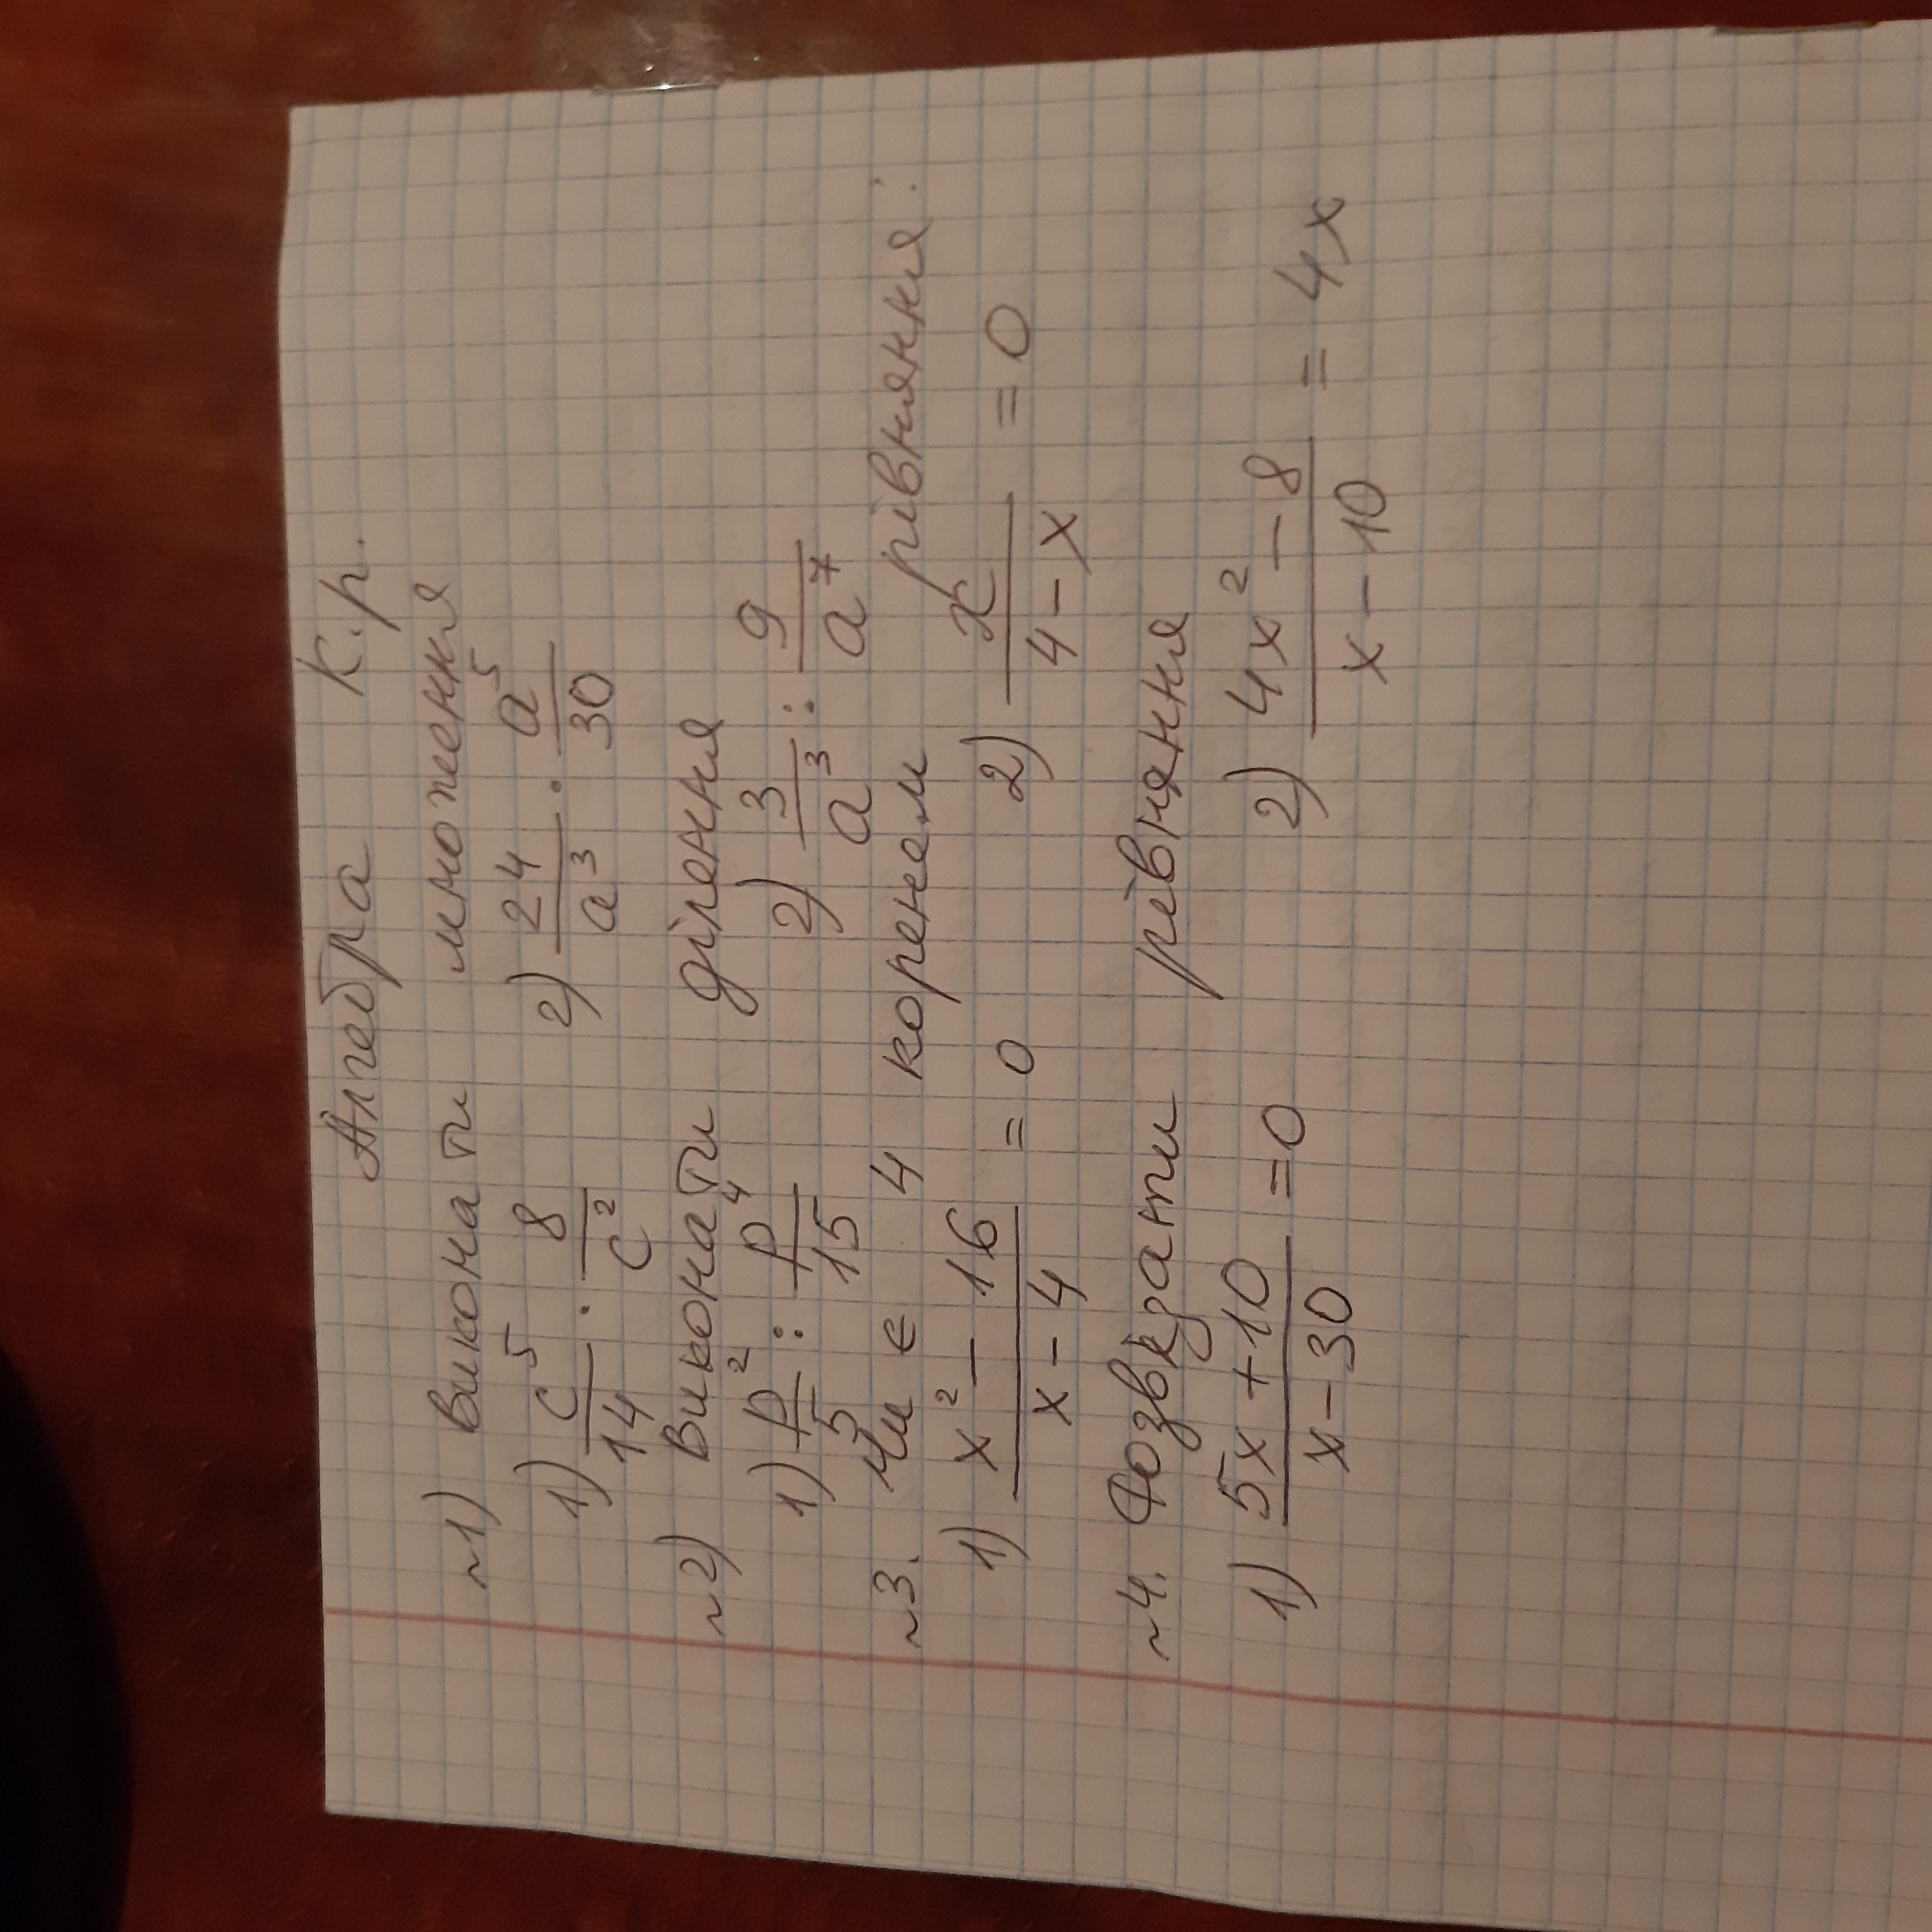 Алгебра к.р.
№1) Виконати множення
1) c⁵/14 · 8/c² 2) 24/a³ · a⁵/30
№2) Виконати ділення
1) p²/5 : p⁴/15 2) 3/a³ : 9/a⁷
№3. Чи є 4 коренем рівняння:
1) x² - 16 / x - 4 = 0 2) x / 4 - x = 0
№4. Розвязати рівняння
1) 5x + 10 / x - 30 = 0 2) 4x² - 8 / x - 10 = 4x